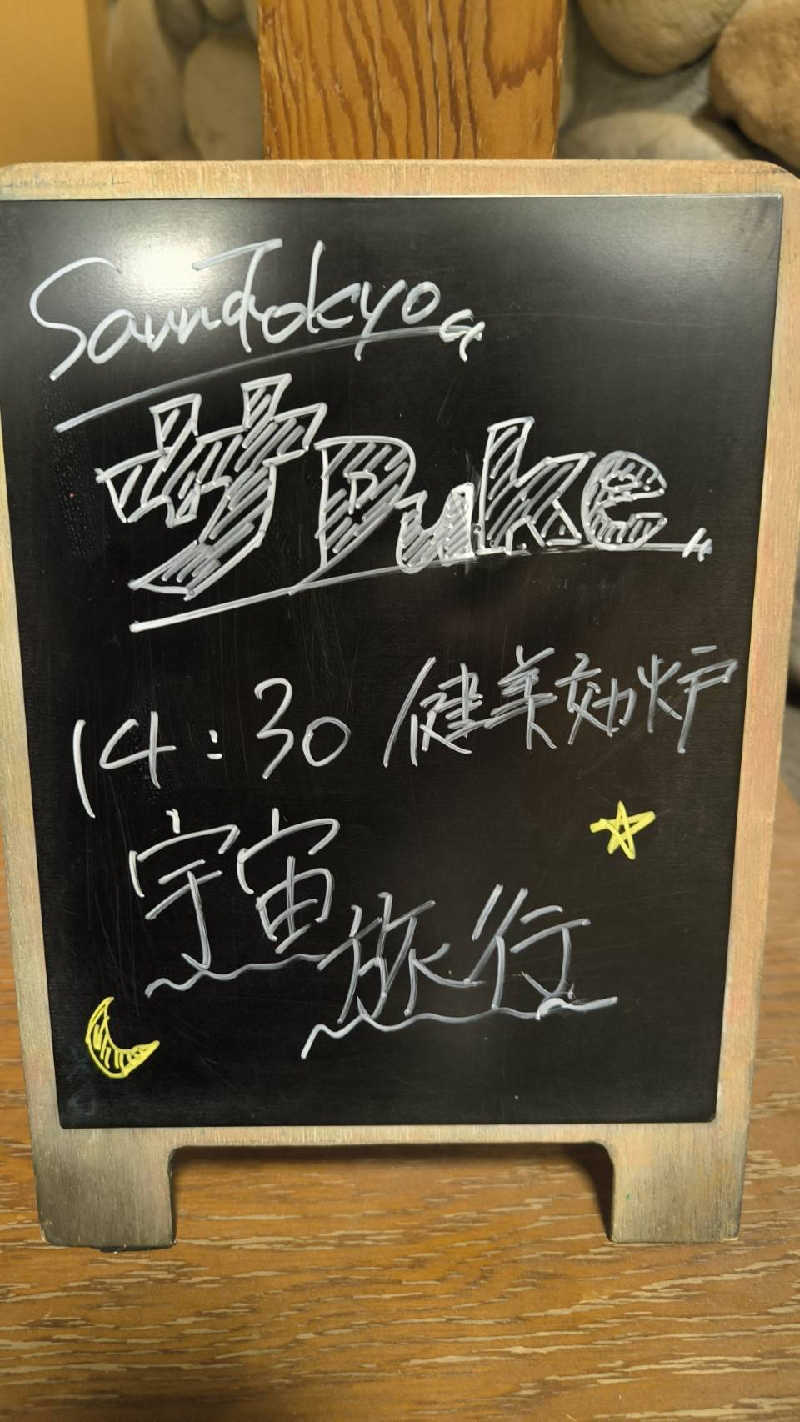 SaunaTokyo
サDuke
14:30 健美効炉
宇宙
旅行